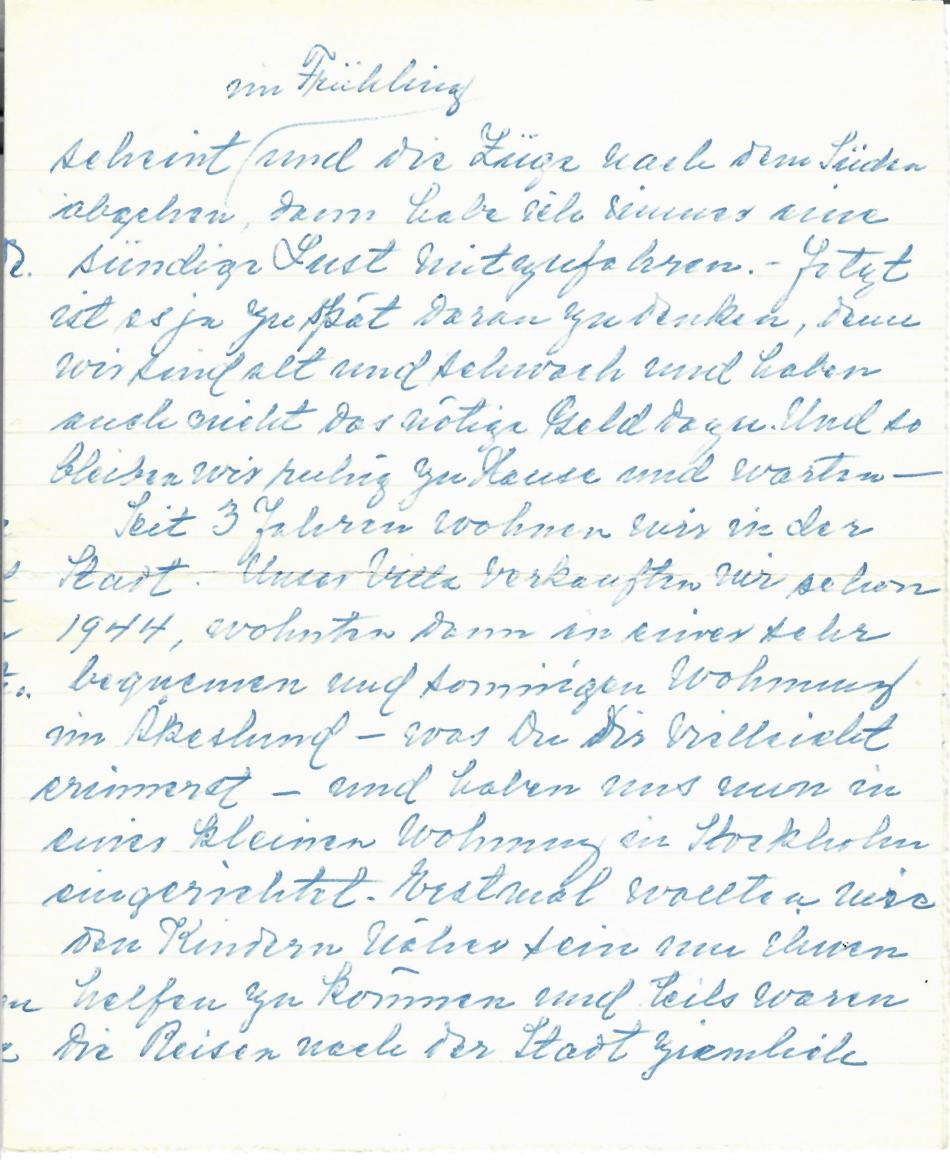 im Frühling
scheint (und die Züge nach dem Süden
abgehen, dann habe ich immer eine
sündige Lust mitzufahren. - Jetzt
ist es ja zu spät daran zu denken, denn
wir sind alt und schwach und haben
auch nicht das nötige Geld dazu. Und so
bleiben wir ruhig zu Hause und warten —
Seit 3 Jahren wohnen wir in der
Stadt. Unser Villa verkauften wir schon
1944, wohnten dann in einer sehr
bequemen und sonnigen Wohnung
im Åkeslund - was Du Dir vielleicht
erinnerst - und haben uns nun in
einer kleinen Wohnung in Stockholm
eingerichtet. Erstmal wollten wir
den Kindern näher sein um ihnen
helfen zu können und teils waren
die Reisen nach der Stadt ziemlich